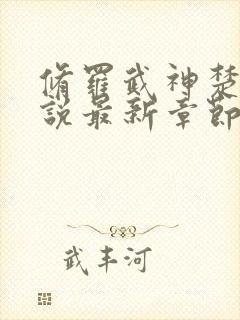 脩羅武神楚
說最新章節
武丰河